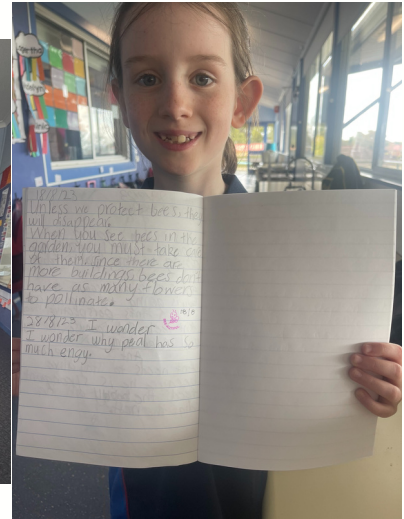 18/8/23
Unless we protect bees, they
will disappear.
When you see bees in the
garden, you must take care
of them, since there are
more buildings, bees don't
have as many flowers
to pollinate.
28/8/23 I wonder
I wonder why peal has so
much engy.